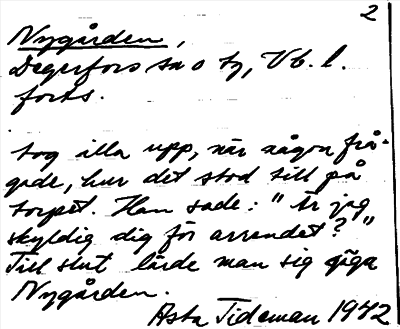 2
Nygården,
Degerfors sn o tg, Vb. l.
forts.
tog illa upp, när några frå-
gade, hur det stod till på
torpet. Han sade: "Är jag
skyldig dig för arrendet?"
Till slut lärde man sig säga
Nygården.
Asta Tideman 1942